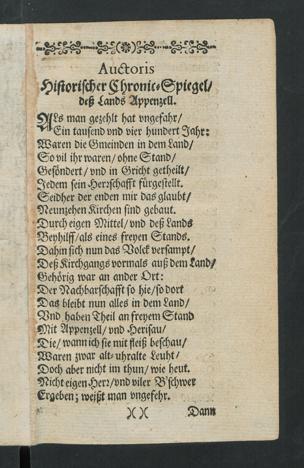 Auctoris
Historischer Chronic-Spiegel/
deß Lands Appenzell.
ALs man gezehlt hat vngefahr/
Ein tausend vnd vier hundert Jahr:
Waren die Gmeinden in dem Land/
So vil ihr waren/ ohne Stand/
Gesöndert/ vnd in Gricht getheilt/
Jedem sein Herrschafft fürgestellt.
Seidher der enden mir das glaubt/
Neunzehen Kirchen sind gebaut.
Durch eigen Mittel/ vnd deß Lands
Beyhilff/ als eines freyen Stands.
Dahin sich nun das Volck versampt/
Deß Kirchgangs vormals auß dem Land/
Gehörig war an ander Ort:
Der Nachbarschafft so hie/ so dort
Das bleibt nun alles in dem Land/
Vnd haben Theil an freyem Stand
Mit Appenzell/ vnd Herisau/
Die/ wann ich sie mit fleiß beschau/
Waren zwar alt-uhralte Leuht/
Doch aber nicht im thun/ wie heut.
Nicht eigen Herr/ vnd viler B'schwer
Ergeben; weißt man vngefehr.
)( )( Dann